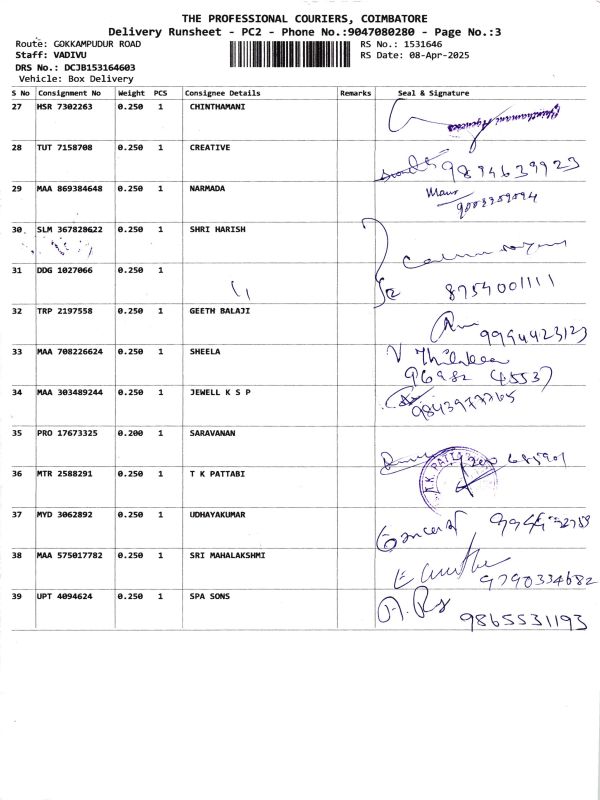 THE PROFESSIONAL COURIERS, COIMBATORE
Delivery Runsheet - PC2 - Phone No.:9047080280 - Page No.:3
Route: GOKKAMPUDUR ROAD RS No.: 1531646
Staff: VADIVU RS Date: 08-Apr-2025
DRS No.: DCJB153164603
Vehicle: Box Delivery
S No Consignment No Weight PCS Consignee Details Remarks Seal & Signature
27 HSR 7302263 0.250 1 CHINTHAMANI Chinthamani Agencies
28 TUT 7158708 0.250 1 CREATIVE 9894639923
29 MAA 869384648 0.250 1 NARMADA
30 SLM 367828622 0.250 1 SHRI HARISH
31 DDG 1027066 0.250 1 8754001111
32 TRP 2197558 0.250 1 GEETH BALAJI 9994423123
33 MAA 708226624 0.250 1 SHEELA V Thilakaa
96982 45537
34 MAA 303489244 0.250 1 JEWELL K S P 9843977765
35 PRO 17673325 0.200 1 SARAVANAN
36 MTR 2588291 0.250 1 T K PATTABI T.K. PATTA
37 MYD 3062892 0.250 1 UDHAYAKUMAR
38 MAA 575017782 0.250 1 SRI MAHALAKSHMI 9790334682
39 UPT 4094624 0.250 1 SPA SONS 9865531193